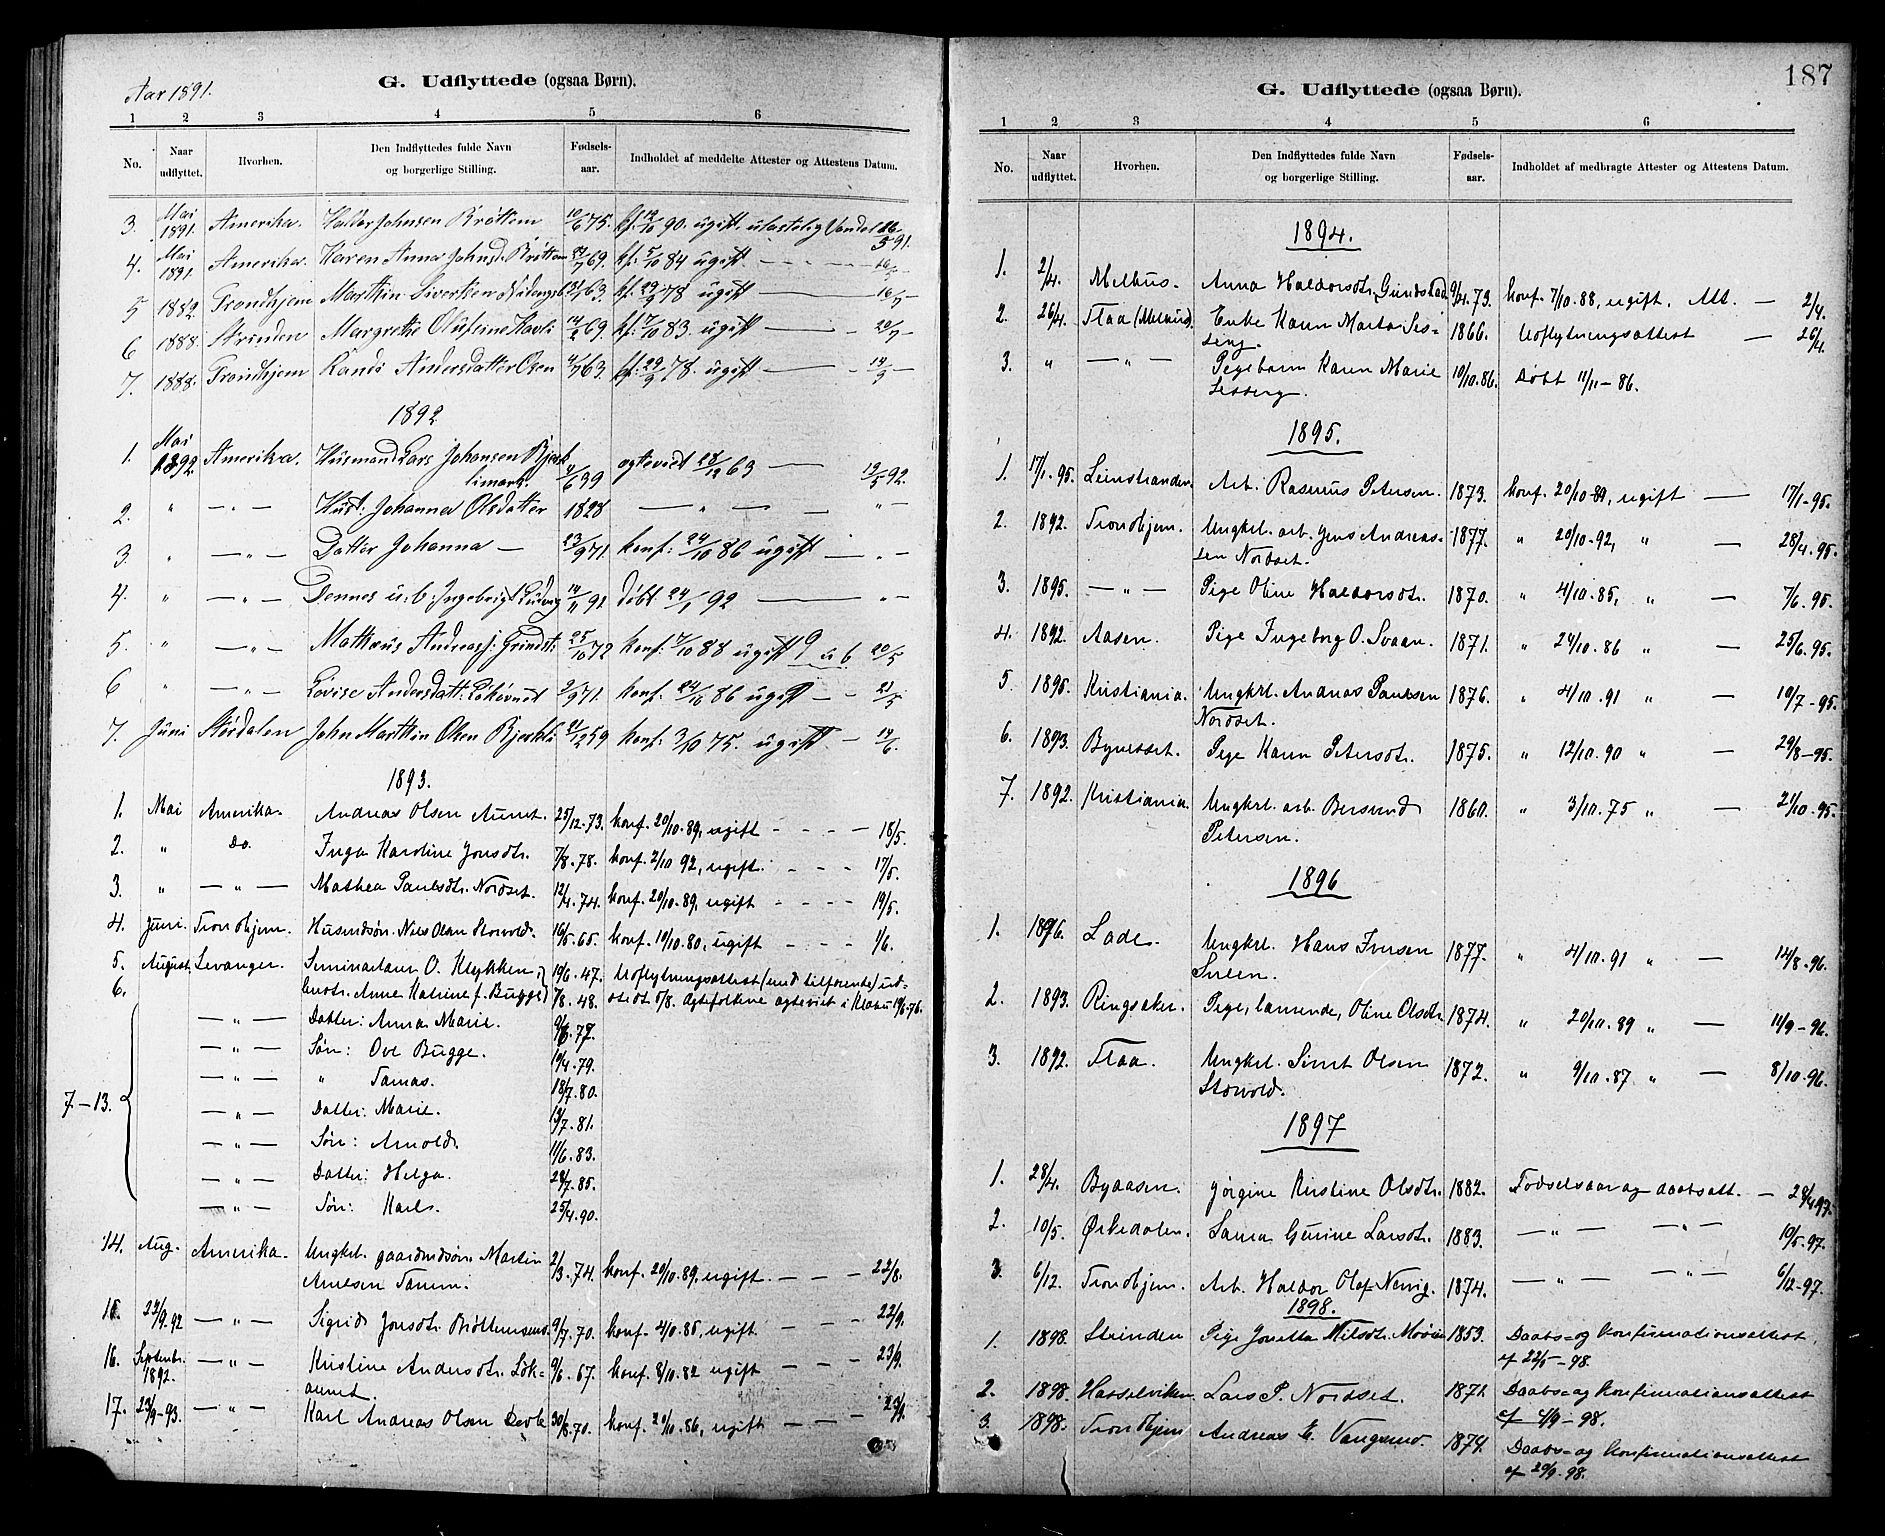 Aar 1891.
G. Udflyttede (ogsaa Børn).
1 2 3 4 5 6
No. Naar udflyttet. Hvorhen. Den Indflyttedes fulde Navn og borgerlige Stilling. Fødsels-aar. Indholdet af meddelte Attester og Attestens Datum.
3. Mai 1891. Amerika. Haldor Johnsen Bröttem 10/6 75. kf. 19/10 90. ugift. ulastelig Vandel 16/5 91.
4. Mai 1891. Amerika. Karen Anna Johnsd. Bröttem 69. kf. 5/10 84 ugift — 16/5 —
5 1882. Trondhjem Marthin Sivertsen 63. kf. 29/9 78 ugift — 16/7 —
6 1888. Strinden Margrethe Olufine 14/2 69. kf. 7/10 83. ugift — 20/7 —
7. 1888. Trondhjem Randi Andersdatter Osen 4/7 63. kf. 29/9 78. ugift — 19/9 —
1892
1. Mai 1892. Amerika. Husmand Lars Johansen Bjerk-
limark. 4/6 39 egteviet 28/12 63 — 19/5 92.
2. " — " — Hust: Johanna Olsdatter 1828 — " — — " —
3. " — " — Datter Johanna — 23/9 71. konf: 24/10 86 ugift — " —
4. " — " — Dennes u: b: Ingebrigt Ludvig 14/11 91 døbt 24/1 92 — " —
5. " — " — Mathæus Andreas J: 25/10 72 konf: 7/10 88 ugift 20/5
6 " — " — Lovise Andersdatt: 2/9 71. konf: 24/10 86 ugift — 21/5
7. Juni Størdalen John Marthin Olsen Bjerkli 21/12 59 konf: 3/10 75. ugift. — 14/6.
1893.
1. Mai Amerika. Andreas Olsen Aunet. 25/12. 73. konf. 20/10. 89, ugift — 18/5.
2. " Do. Inga Karoline Jonsdtr. 7/8. 78. konf. 2/10 92, ugift. — 17/5.
3. " — " — Mathea Paulsdtr. Nordset. 12/4. 74. konf. 20/10. 89, ugift — 19/5.
4. Juni. Trondhjem. Husmdsøn. Nils Olsen Storvold. 16/5. 65. konf. 10/10. 80, ugift — 1/6.
5. August. Levanger. Seminarlærer O. Klykken, 19/6. 47. Udflytningsattest (med tilførende) ud-
6. hustr. Anne Katrine f. Bugge 7/8. 48. stedt 5/8. Ægtefolkene ægteviet i Klæbu 19/6. 76.
7–13. — " — Datter: Anna Marie. 9/6. 77.
— " — Søn: Ove Bugge. 19/4. 79.
— " — " Tomas. 18/7. 80.
— " — Datter: Marie. 81.
— " — Søn: Arnold. 11/6. 83.
— " — Datter: Helga. 28/7. 85.
— " — Søn: Karl. 25/4. 90.
14. Aug. Amerika. Ungkrl. gaardmdsøn Martin 2/3. 74. konf. 20/10. 89, ugift. — 22/8.
Arnesen Tanem.
15. 22/9. 92 — " — Sigrid Jonsdtr. 9/7. 70. konf. 4/10. 85, ugift — 22/9.
16. Septembr. 1892. — " — Kristine Andersdtr. Løk- 9/6. 67. konf. 8/10. 82 ugift — 23/9.
aunet.
17. 23/9–93. — " — Karl Andreas Olsen Devle 30/8. 70. konf. 86, ugift — 23/9.
187
G. Udflyttede (ogsaa Børn).
1 2 3 4 5 6
No. Naar udflyttet. Hvorhen. Den Indflyttedes fulde Navn og borgerlige Stilling. Fødsels-aar. Indholdet af medbragte Attester og Attestens Datum.
1894.
1. 2/4. Melhus. Anna Haldorsdtr. 9/4. 73. konf. 7/10. 88, ugift. Att. — 2/4.
2. 26/4. Flaa (Melhus). Enke Karen Marta 1866. Udflytningsattest — 26/4.
3. " — " — Pigebarn Karen Marie 10/10. 86. Døbt 11/11 – 86.
1895.
1. 17/1. 95. Leinstranden. Arb. Rasmus Petersen. 1873. konf. 20/10-89, ugift — 17/1-95.
2. 1892. Trondhjem. Ungkrl. arb. Jens Andreas- 1877. " 20/10-92, " — 28/4. 95.
sen Nordset.
3. 1895. — " — Pige Oline Haldorsdtr. 1870. " 4/10. 85, " — 7/6. 95.
4. 1892. Aasen. Pige Ingeborg O. Svaan. 1871. " 24/10. 86 " — 25/6. 95.
5. 1895. Kristiania. Ungkrl. Andreas Paulsen 1876. " 4/10. 91 " — 10/7 – 95.
Nordset.
6. 1893. Bynesset. Pige Karen Petersdtr. 1875. " 12/10. 90 " — 29/8 – 95.
7. 1892. Kristiania. Ungkrl. arb. Bersvend 1860. " 3/10. 75 " — 21/10. 95.
Petersen.
1896
1. 1896. Lade. Ungkrl. Hans Iversen 1877. " 4/10. 91 " — 14/8 – 96.
2. 1893. Ringsaker. Pige, lærerinde, Oline Olsdtr. 1874. " 20/10. 89 " — 11/9 – 96.
3. 1892. Flaa. Ungkrl. Simt Olsen 1872. " 9/10. 87 " — 8/10. 96.
Storvold.
1897
1. 28/4. Byaasen. Jørgine Kirstine Olsdtr. 1882. Fødselsaar og daabsatt. — 28/4 97.
2. 10/5. Ørkedalen. Gurine Larsdtr. 1883. — " — — " — 10/5. 97.
3. 6/12. Trondhjem. Arb. Haldor Olaf 1874. — " — — " — 6/12-97.
1898.
1. 1898. Strinden Pige Jonetta Nilsdtr. 1853. Daabs- og konfirmationsattest
af 22/5 – 98.
2. 1898. Hasselviken Lars P. Nordset. 1871. Daabs- og konfirmationsattest
af 4/9 – 98.
3. 1898. Trondhjem Andreas E. 1874. Daabs- og konfirmationsattest
af 29/9-98.